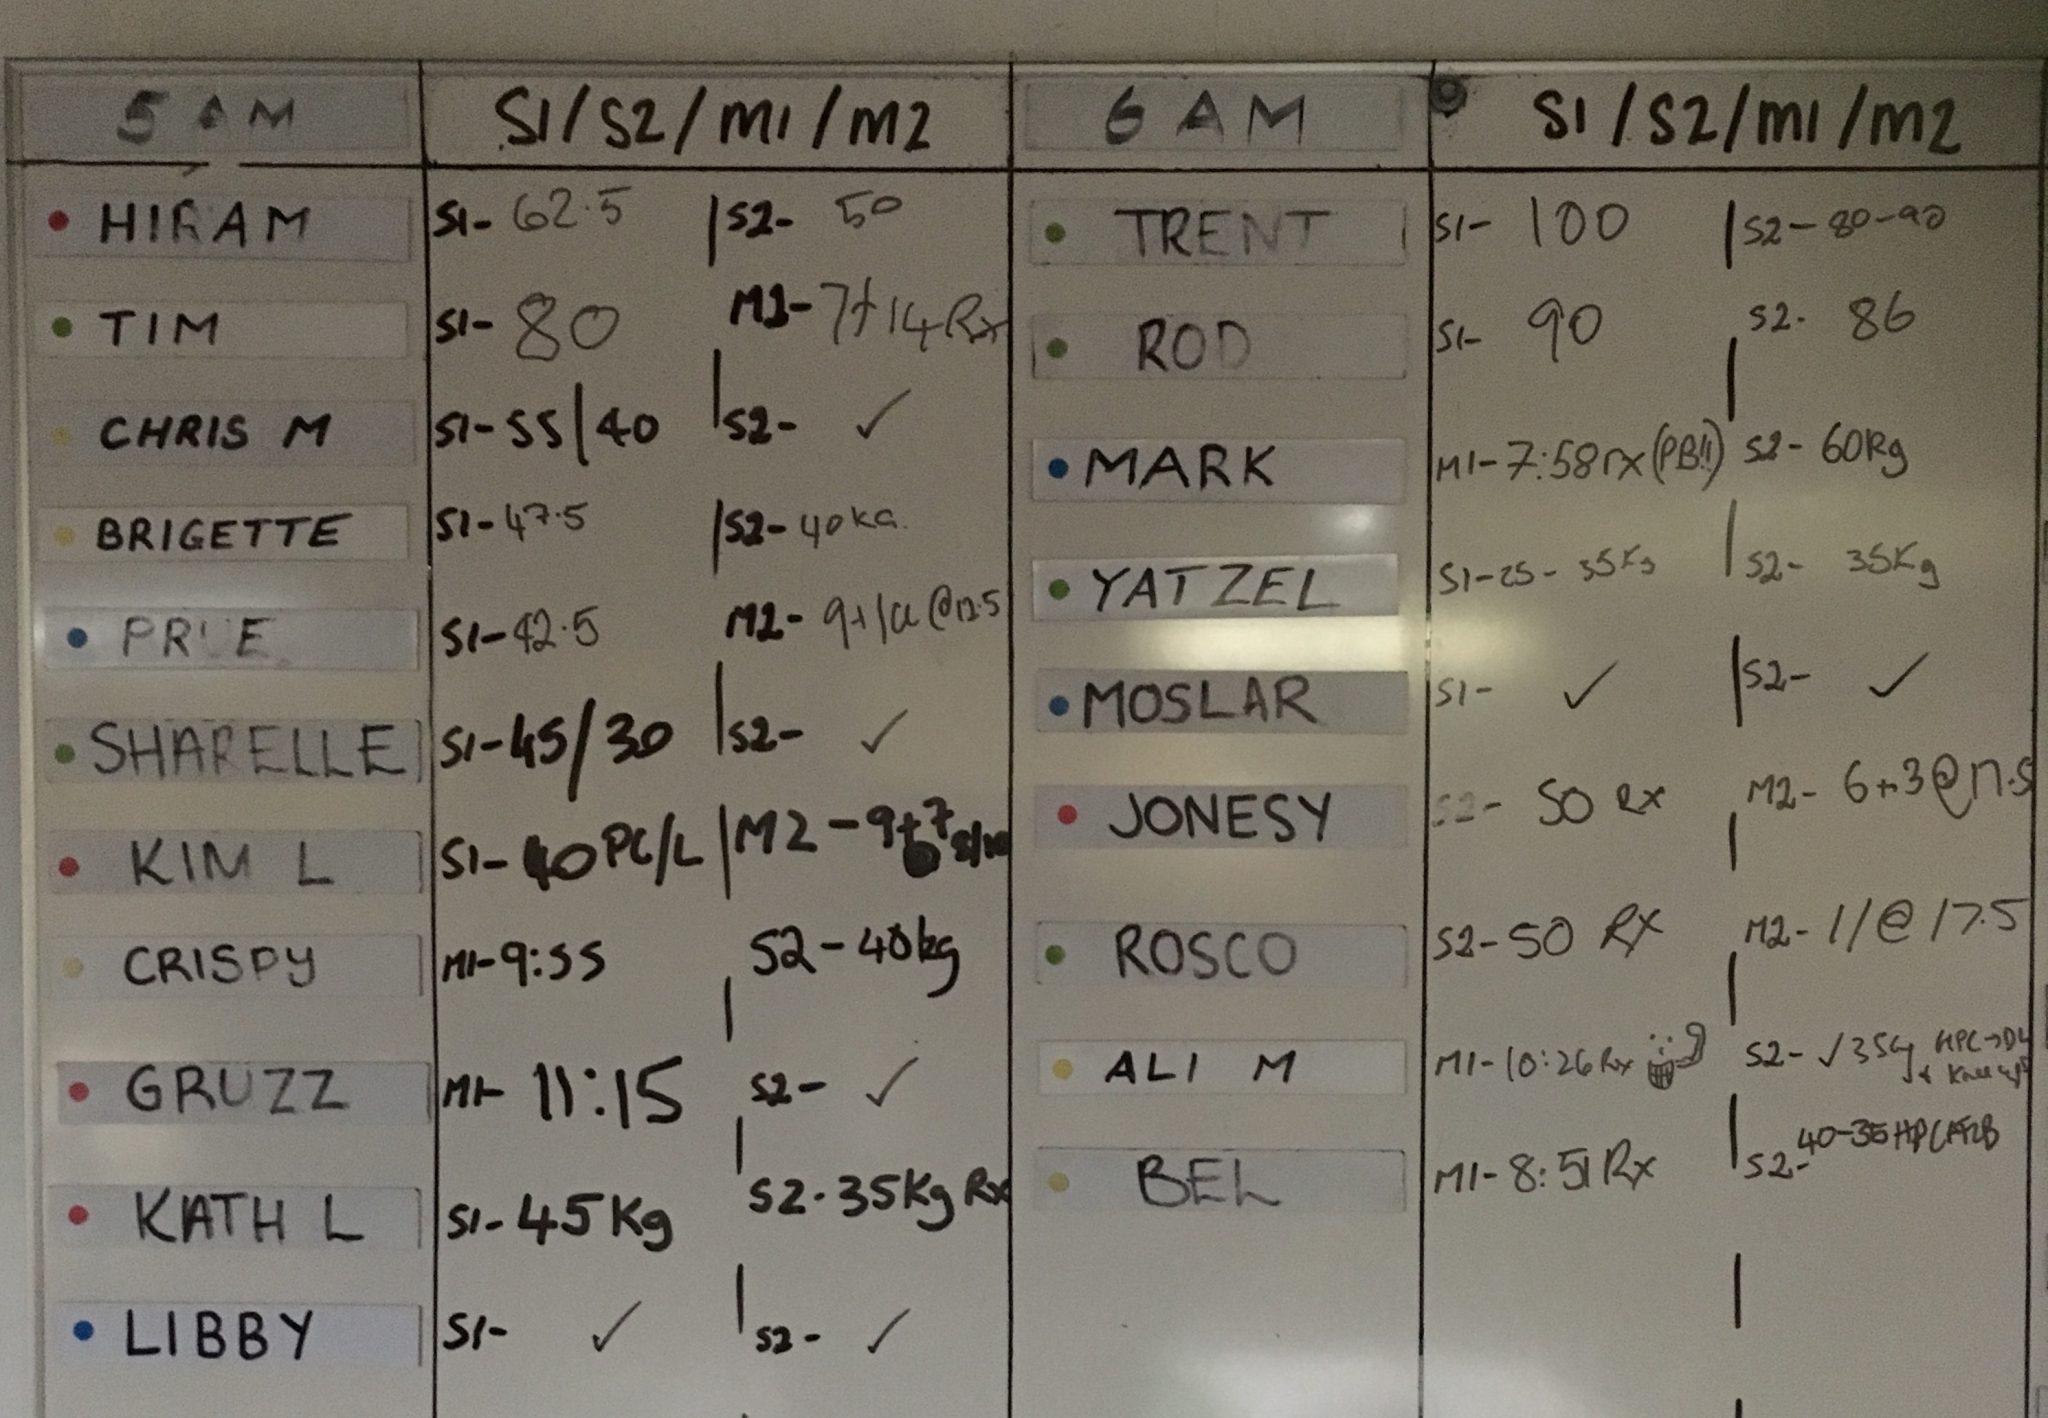 5 AM S1/S2/M1/M2
HIRAM S1- 62.5 | S2- 50
TIM S1- 80 M1- 7+14 Rx
CHRIS M S1- 55/40 | S2- ✓
BRIGETTE S1- 47.5 | S2- 40KG.
PRUE S1- 42.5 M2- @12.5
SHARELLE S1- 45/30 | S2- ✓
KIM L S1- 40 PC/L | M2 - 9+7
CRISPY M1- 9:55 S2- 40kg
GRUZZ M1- 11:15 S2- ✓
KATH L S1- 45Kg S2- 35Kg Rx
LIBBY S1- ✓ S2- ✓
6 AM S1/S2/M1/M2
TRENT S1- 100 | S2- 80-90
ROD S1- 90 S2- 86
MARK M1- 7:58 rx (PB!!) S2- 60Kg
YATZEL S1- 25- 35Kg S2- 35Kg
MOSLAR S1- ✓ | S2- ✓
JONESY S2- 50 Rx M2- 6+3 @ 17.5
ROSCO S2- 50 Rx M2- 11 @ 17.5
ALI M M1- 10:26 Rx S2- ✓ 35
BEL M1- 8:51 Rx S2- 40-35